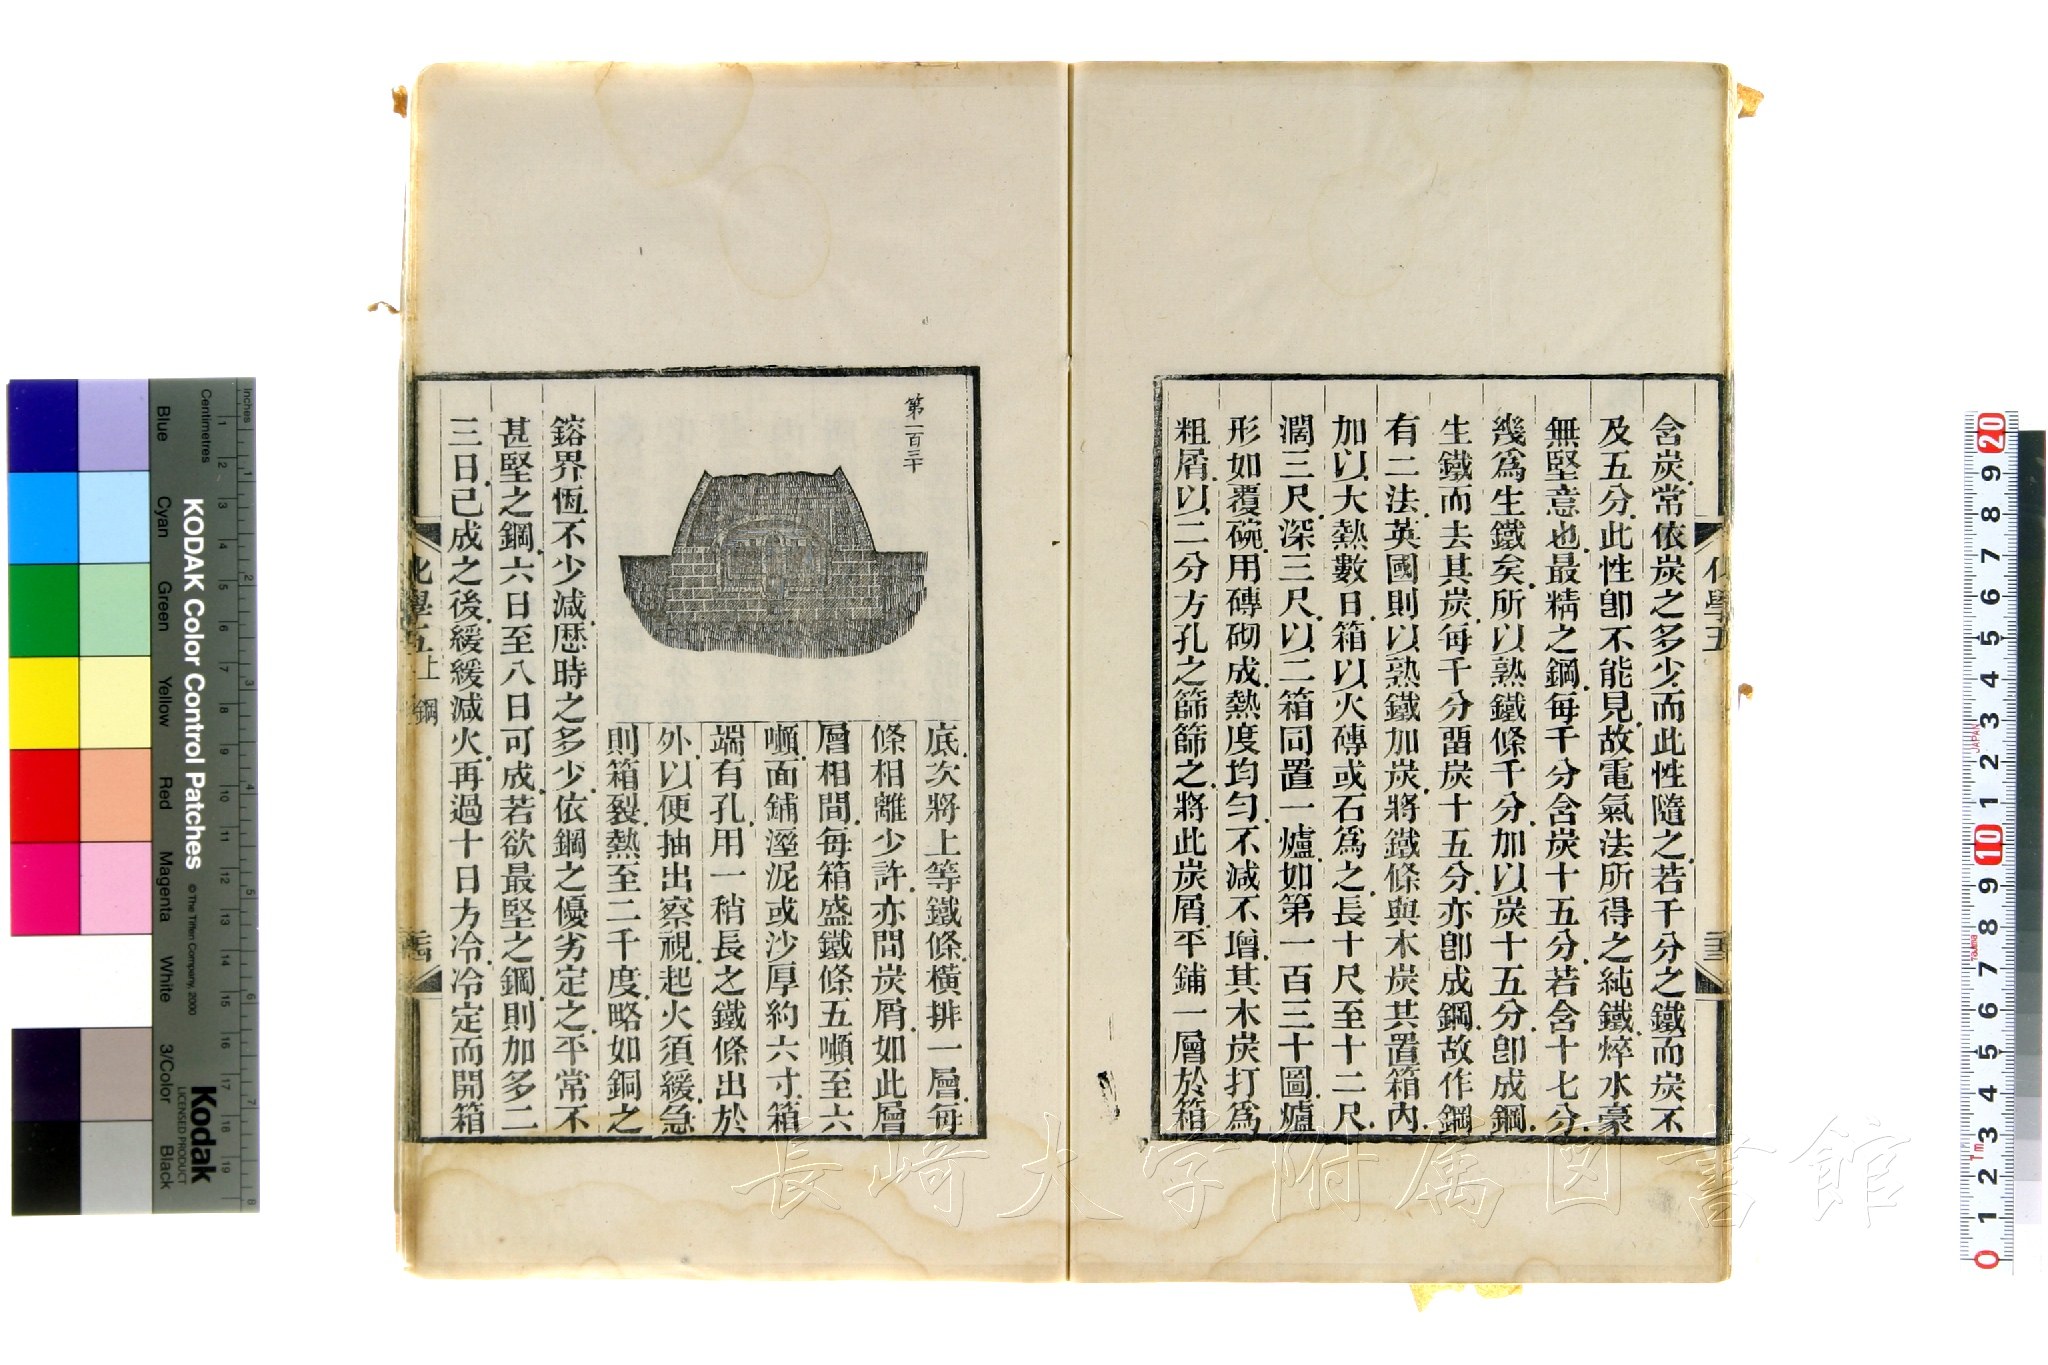 含炭常依炭之多少而此性隨之若千分之鐵而炭不
及五分此性卽不能見故電氣法所得之純鐵焠水豪
無堅意也最精之鋼每千分含炭十五分若含十七分
幾爲生鐵矣所以熟鐵條千分加以炭十五分卽成鋼
生鐵而去其炭每千分畱炭十五分亦卽成鋼故作鋼
有二法英國則以熟鐵加炭將鐵條與木炭其置箱內
加以大熱數日箱以火磚或石爲之長十尺至十二尺
濶三尺深三尺以二箱同置一爐如第一百三十圖爐
形如覆碗用磚砌成熱度均勻不減不增其木炭打爲
粗屑以二分方孔之篩篩之將此炭屑平鋪一層於箱
化學五
第一百三十
底次將上等鐵條橫排一層每
條相離少許亦間炭屑如此層
層相間每箱盛鐵條五噸至六
噸面鋪溼泥或沙厚約六寸箱
端有孔用一稍長之鐵條出於
外以便抽出察視起火須緩急
則箱裂熱至二千度略如銅之
鎔界恆不少減歷時之多少依鋼之優劣定之平常不
甚堅之鋼六日至八日可成若欲最堅之鋼則加多二
三日已成之後緩緩減火再過十日方冷冷定而開箱
化學五上 鋼
長崎大学附属図書館
KODAK Color Control Patches
© The Tiffen Company, 2000
Kodak
LICENSED PRODUCT
Inches
Centimetres
Blue
Cyan
Green
Yellow
Red
Magenta
White
3/Color
Black
1 2 3 4 5 6 7 8 9 10 11 12 13 14 15 16 17 18 19
1 2 3 4 5 6 7 8
20 9 8 7 6 5 4 3 2 1 10 9 8 7 6 5 4 3 2 1 0
JAPAN
Tajima
1m